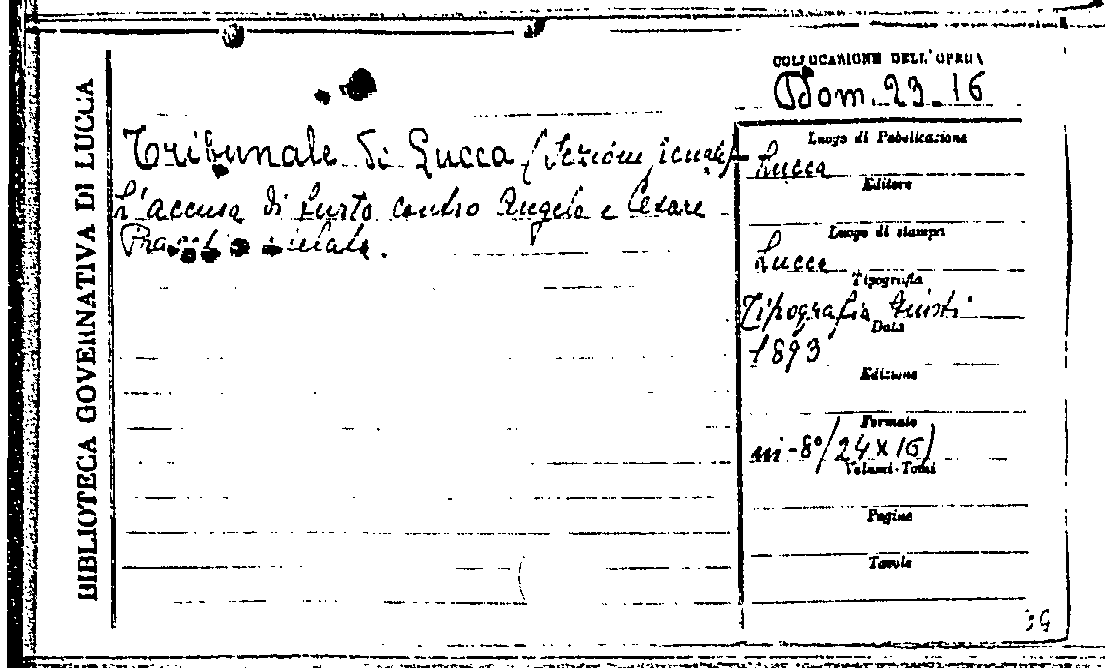 BIBLIOTECA GOVERNATIVA DI LUCCA
COLLOCAZIONE DELL'OPERA
Dom. 23-16
Tribunale di Lucca (Sezione penale)
L'accusa di furto contro Angelo e Cesare
Luogo di Pubblicazione
Lucca
Editore
Luogo di stampa
Lucca
Tipografia
Tipografia Giusti
Data
1893
Edizione
Formato
in-8°(24x16)
Volumi-Tomi
Pagine
Tavole
39